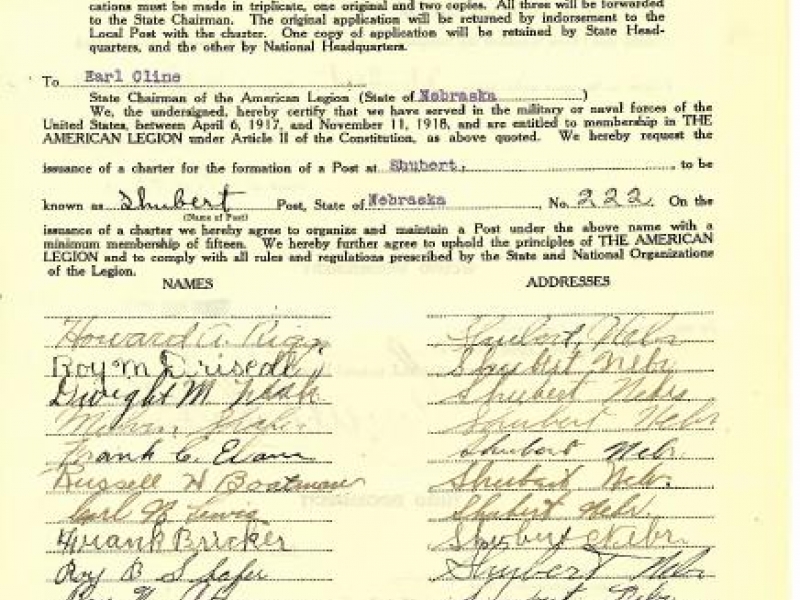 cations must be made in triplicate, one original and two copies. All three will be forwarded
to the State Chairman. The original application will be returned by indorsement to the
Local Post with the charter. One copy of application will be retained by State Head-
quarters, and the other by National Headquarters.
To Earl Cline
State Chairman of the American Legion (State of Nebraska)
We, the undersigned, hereby certify that we have served in the military or naval forces of the
United States, between April 6, 1917, and November 11, 1918, and are entitled to membership in THE
AMERICAN LEGION under Article II of the Constitution, as above quoted. We hereby request the
issuance of a charter for the formation of a Post at Shubert, to be
known as Shubert Post, State of Nebraska, No. 222. On the
(Name of Post)
issuance of a charter we hereby agree to organize and maintain a Post under the above name with a
minimum membership of fifteen. We hereby further agree to uphold the principles of THE AMERICAN
LEGION and to comply with all rules and regulations prescribed by the State and National Organizations
of the Legion.
NAMES ADDRESSES
Howard A. Rigg Shubert, Nebr
Roy M Driscoll Shubert Nebr.
Dwight M Shubert Nebr
Shubert Nebr
Frank C. Evans Shubert Nebr.
Russell H Boatman Shubert Nebr.
Carl N Lewis Shubert Nebr.
Frank Bricker Shubert Nebr.
Roy B Shafer Shubert Nebr
Shubert Nebr